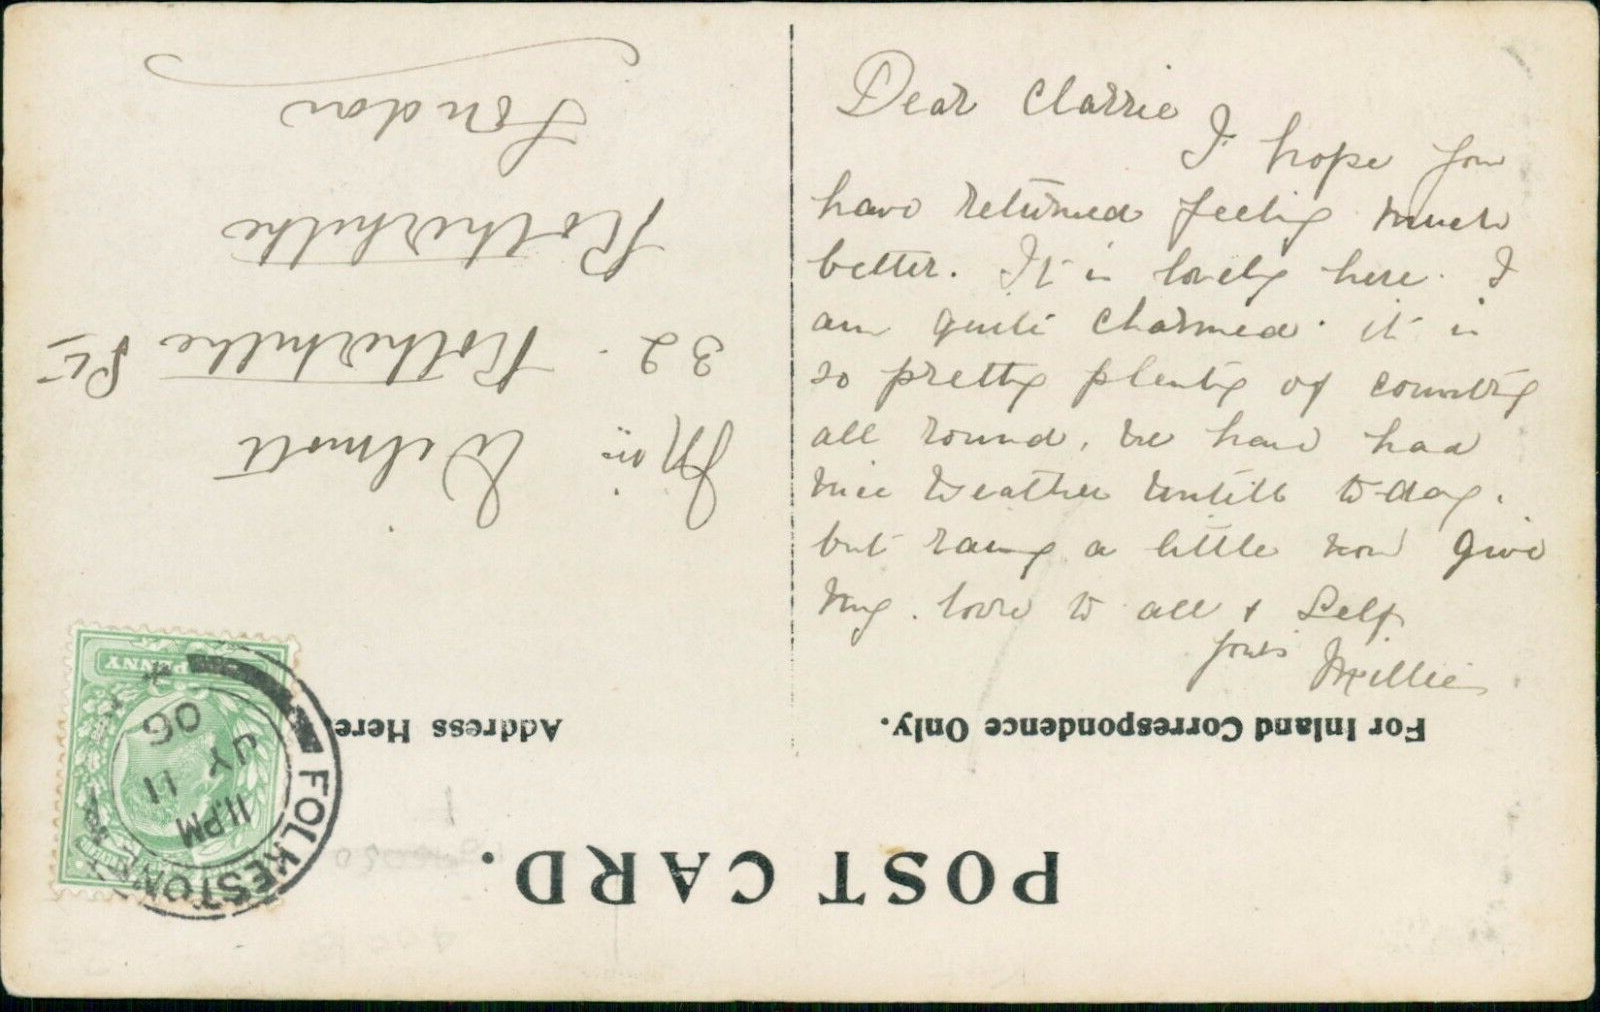 Dear Clarrie
I hope you
have returned feeling much
better. It is lovely here. I
am quite charmed. it is
so pretty plenty of country
all round, we have had
nice weather untill to-day.
but raing a little now give
my. love to all & Self
yours Millie
POST CARD.
For Inland Correspondence Only.
Address Here.
Miss Wilmott
32. Rotherhithe St
Rotherhithe
London
PENNY
FOLKESTONE
11 PM
11 JY
06